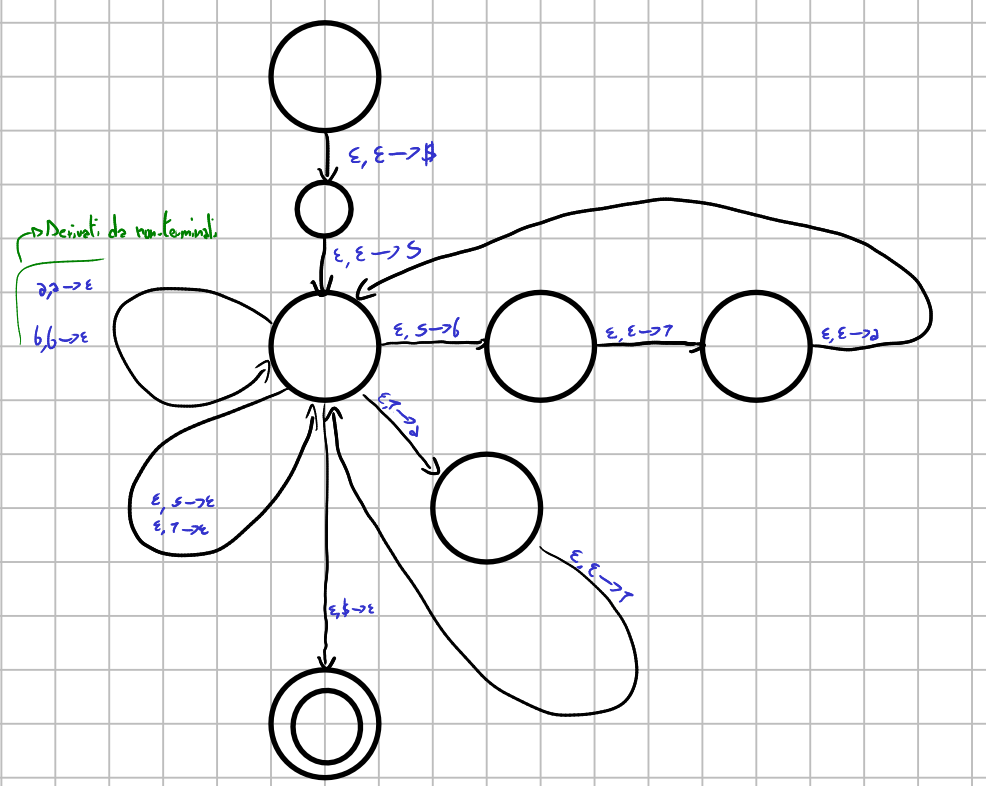 ε, ε→$
↳ Derivati da non-terminali
ε, ε→S
a,a→ε
b,b→ε
ε, S→b
ε, ε→T
ε, ε→a
ε,T→a
ε, S→ε
ε,T→ε
ε, ε→T
ε,$→ε